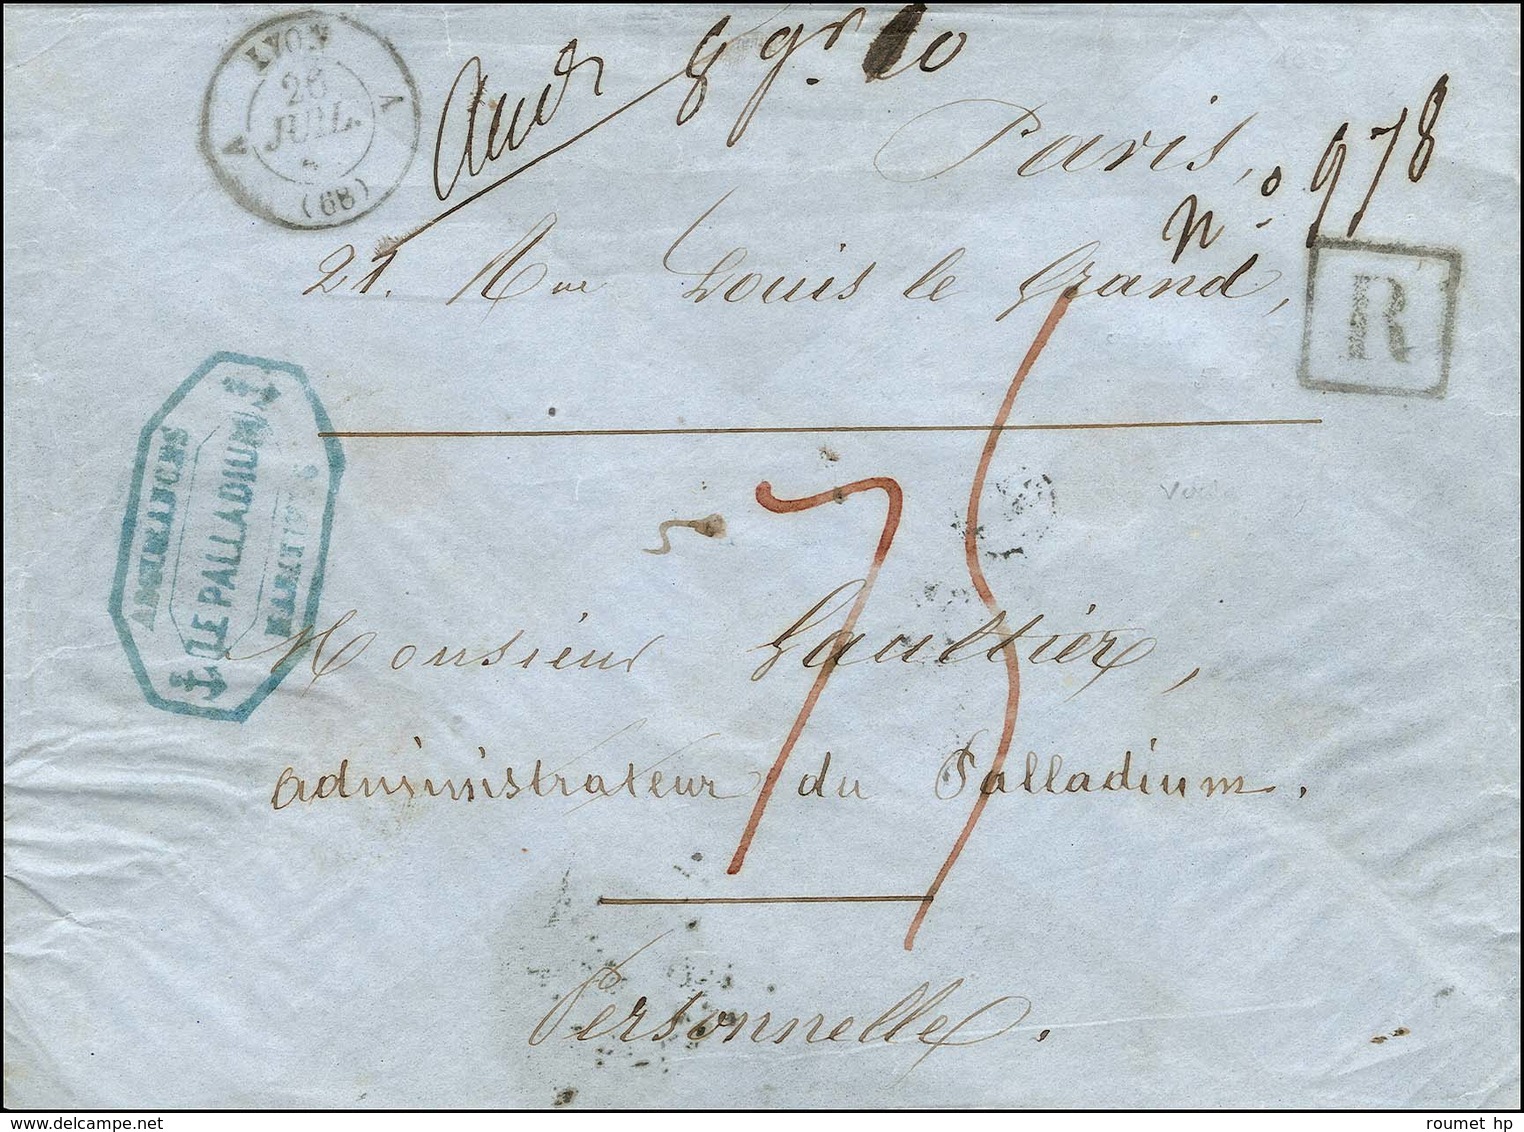 LYON
26
JUIL.
(68)
A A
8 gr 10
Paris,
n° 978
21. Rue Louis le Grand,
R
ASSURANCES
LE PALLADIUM
MARITIMES
75
Monsieur Gaultier,
administrateur du Palladium.
Personnelle.
roumet hp